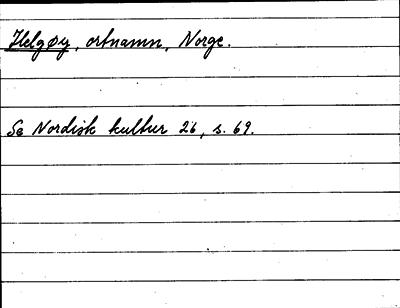 Helgøy, ortnamn, Norge.
Se Nordisk kultur 26, s. 69.